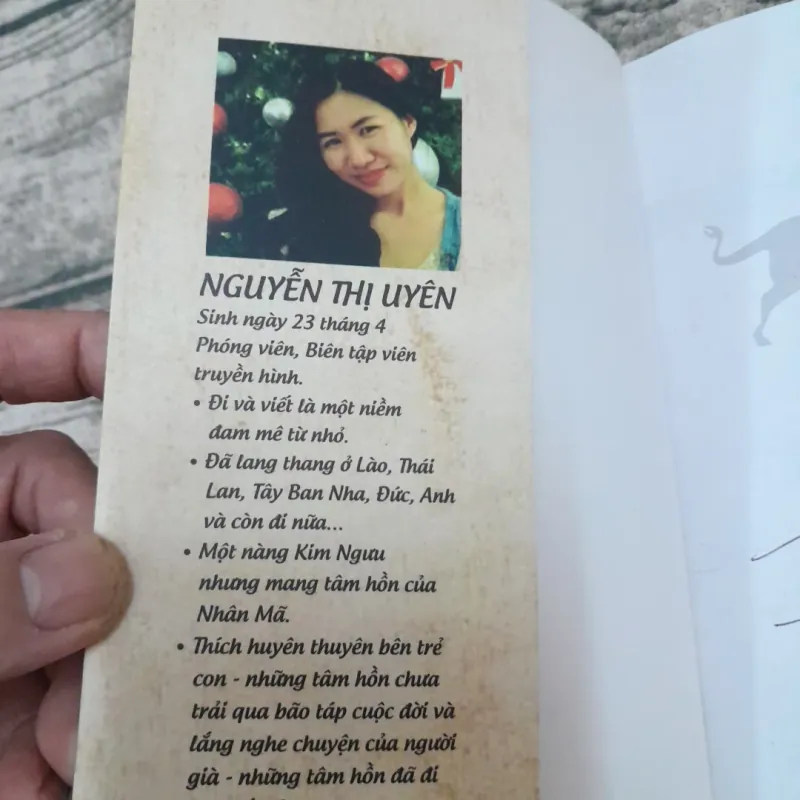 NGUYỄN THỊ UYÊN
Sinh ngày 23 tháng 4
Phóng viên, Biên tập viên
truyền hình.
• Đi và viết là một niềm
đam mê từ nhỏ.
• Đã lang thang ở Lào, Thái
Lan, Tây Ban Nha, Đức, Anh
và còn đi nữa...
• Một nàng Kim Ngưu
nhưng mang tâm hồn của
Nhân Mã.
• Thích huyên thuyên bên trẻ
con - những tâm hồn chưa
trải qua bão táp cuộc đời và
lắng nghe chuyện của người
già - những tâm hồn đã đi